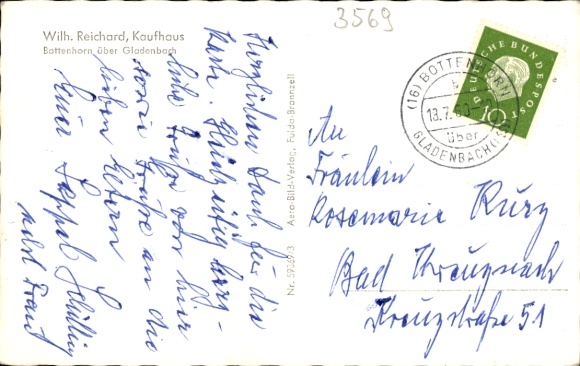 3569
Wilh. Reichard, Kaufhaus
Bottenhorn über Gladenbach
Herzlichen Dank für die
Karte. Gleichzeitig herz-
liche Grüße von hier
sowie Grüße an die
lieben Eltern
Euer Seppl Schilling
nebst Braut
Nr. 59369/3 Aero-Bild-Verlag, Fulda-Bronnzell
DEUTSCHE BUNDESPOST
10
(16) BOTTENHORN
18.7.60
über
GLADENBACH
An
Fräulein
Rosemarie Kurz
Bad Kreuznach
Kreuzstraße 51